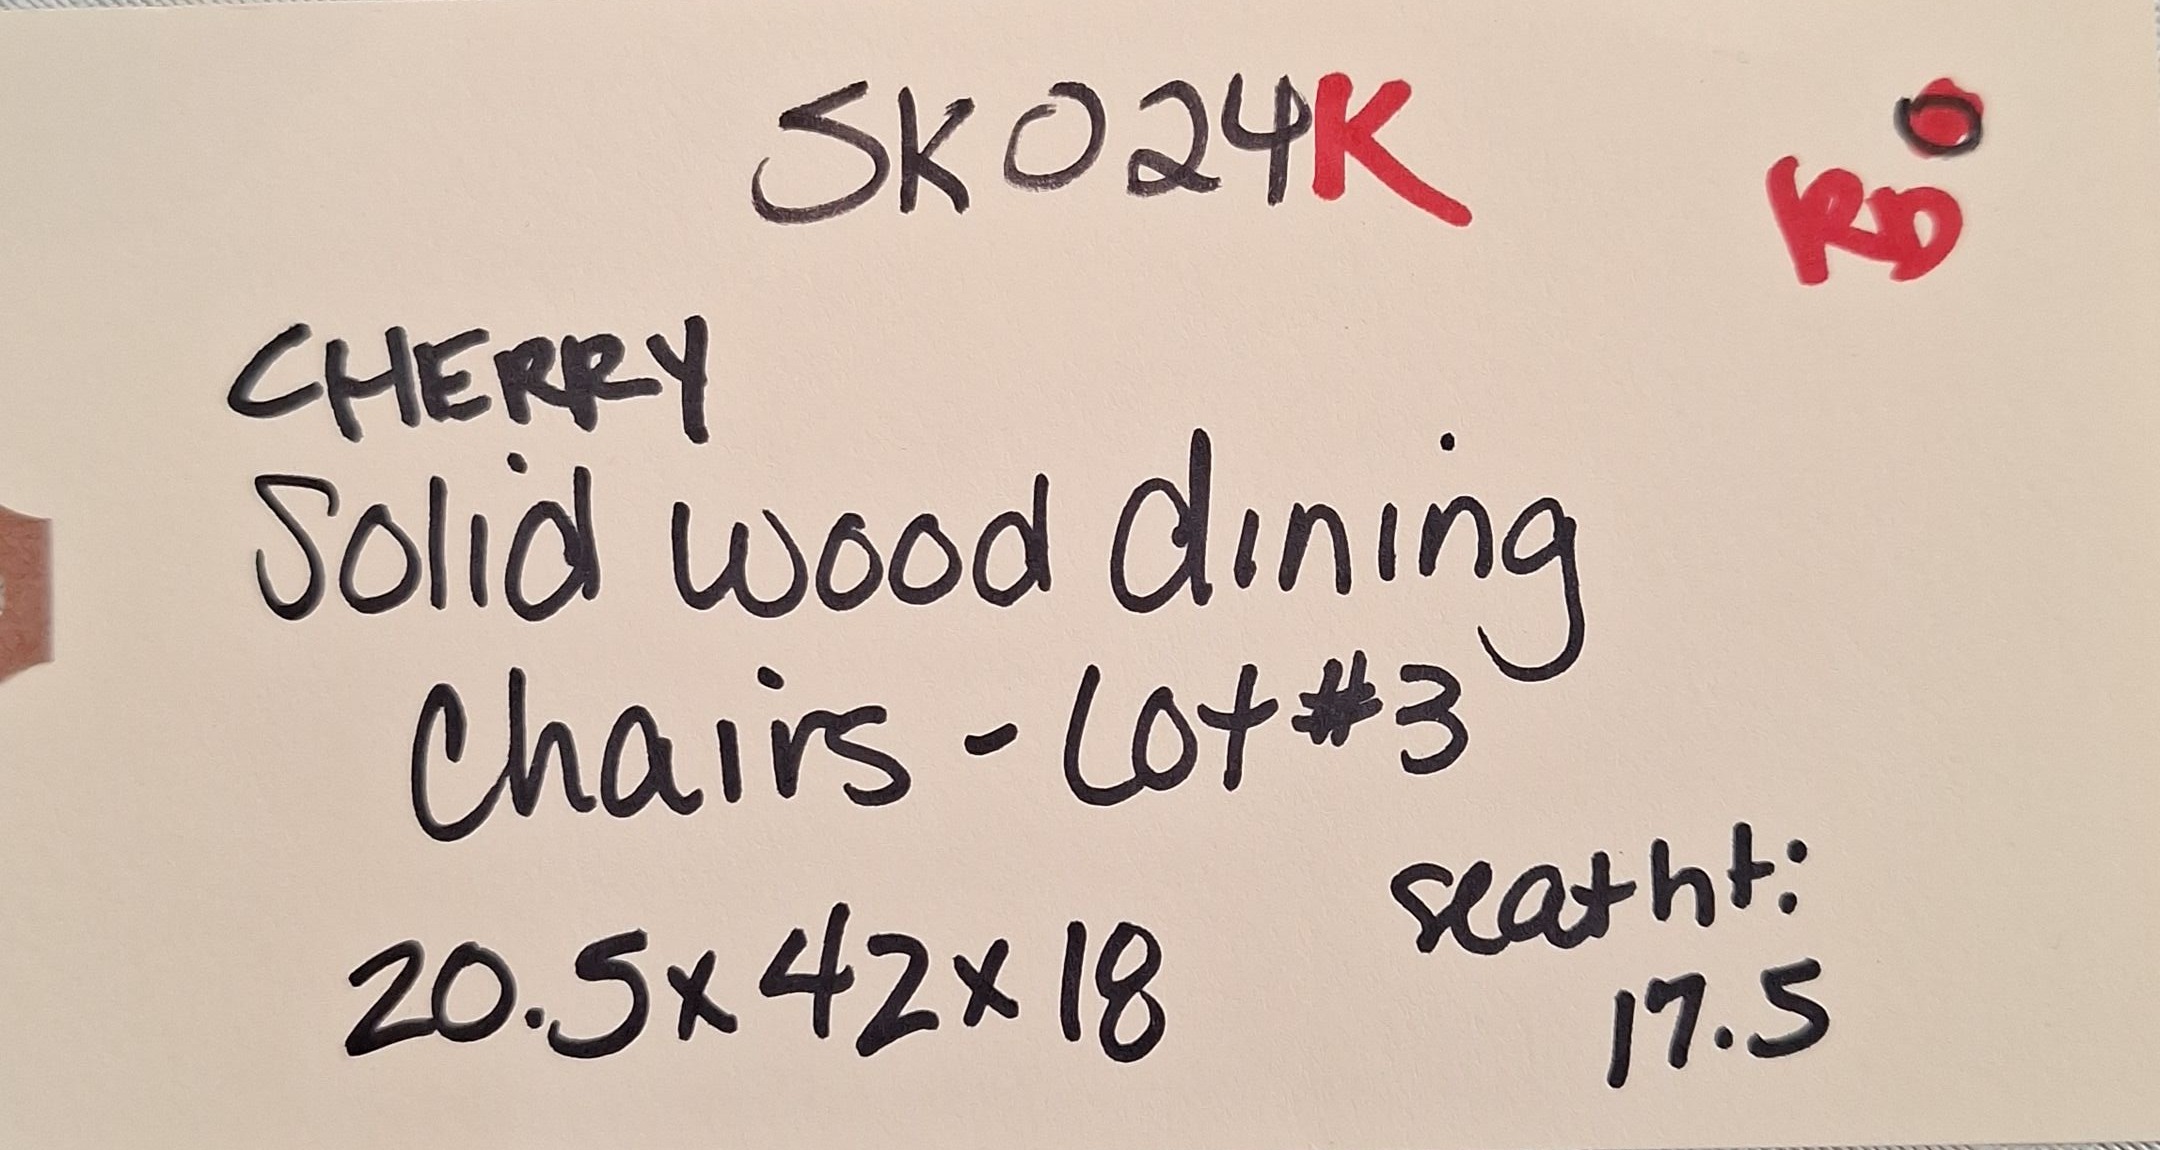 SK024K
RD
CHERRY
Solid wood dining
Chairs - Lot #3
seat ht:
20.5 x 42 x 18
17.5